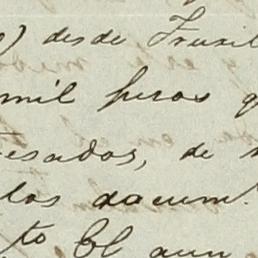 ) desde Truxil
mil pesos q
esados, de
los docum.
to El aun